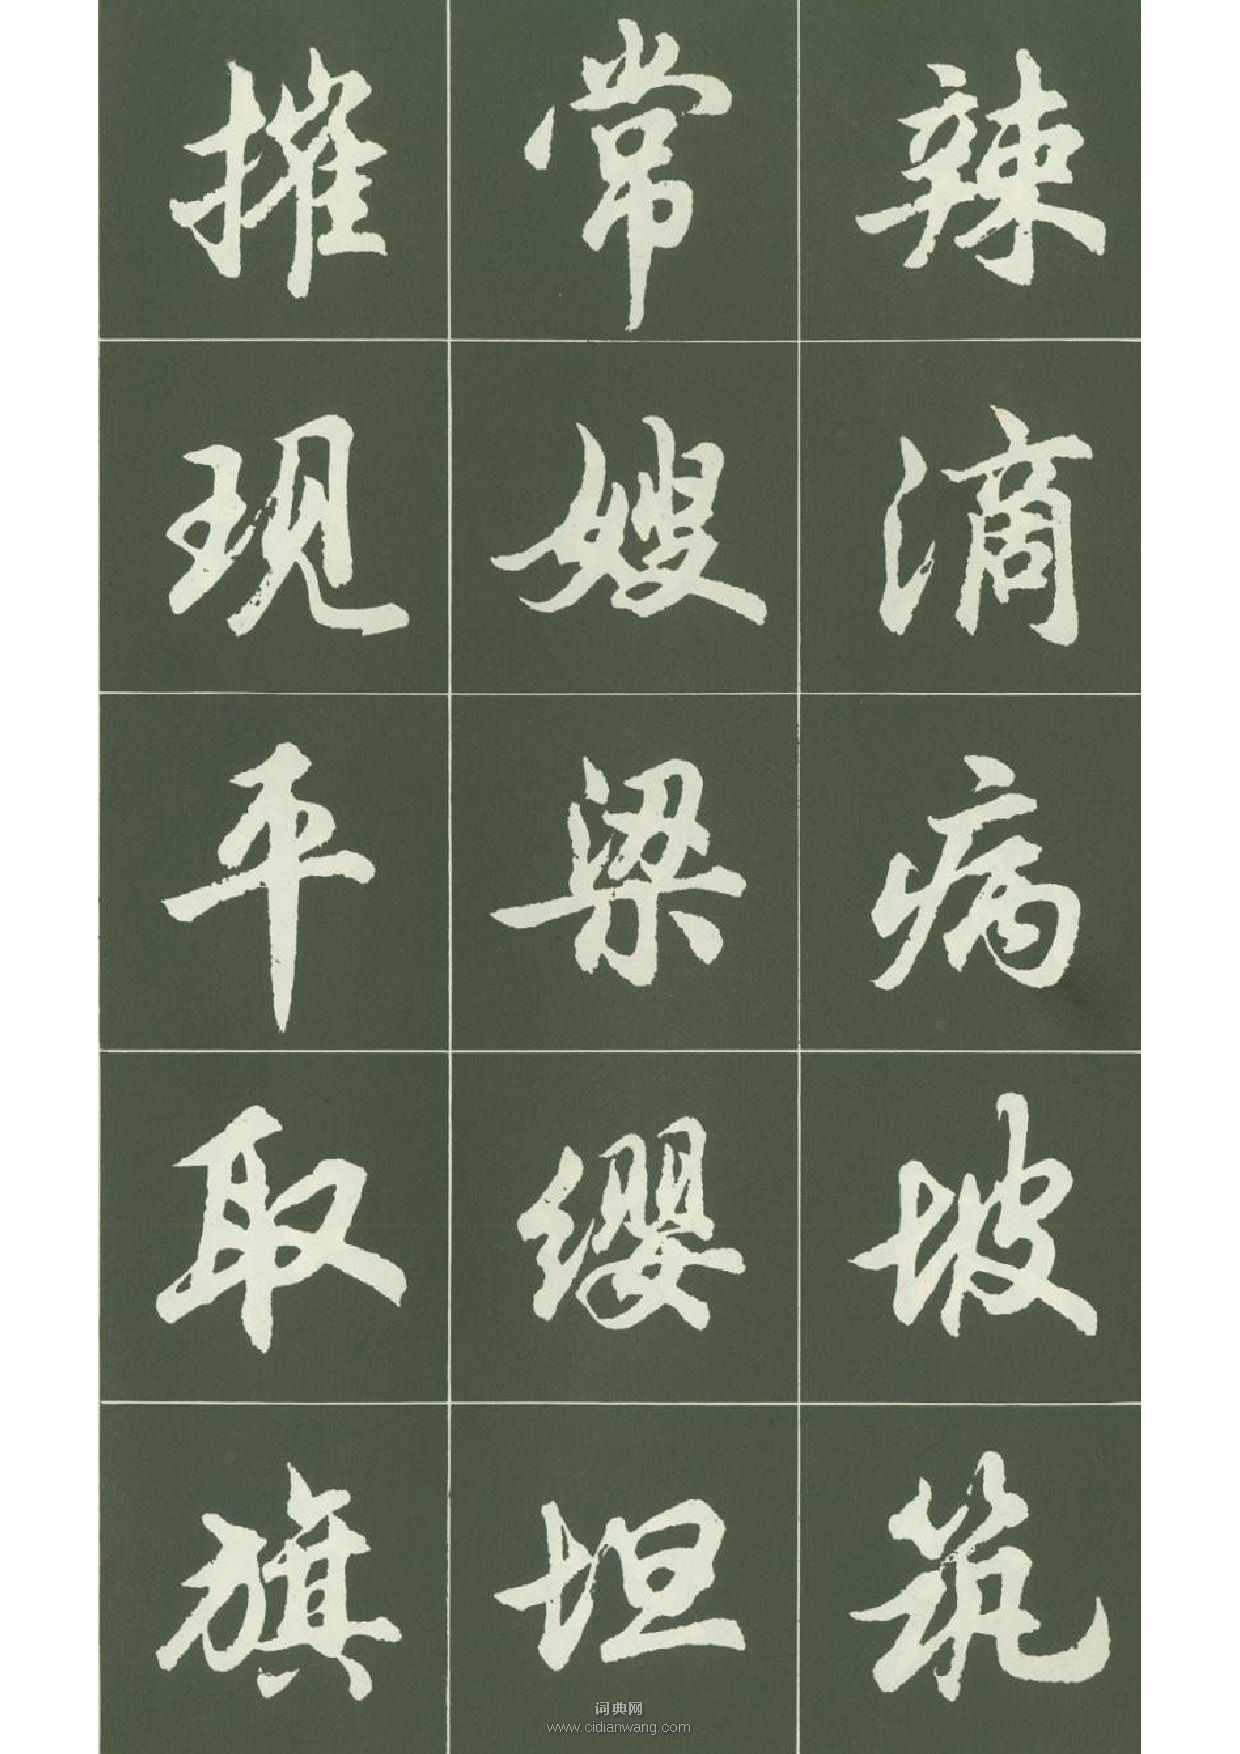 辣滴病坡筑
常嫂梁缨坦
摧现平取旗
词典网
www.cidianwang.com